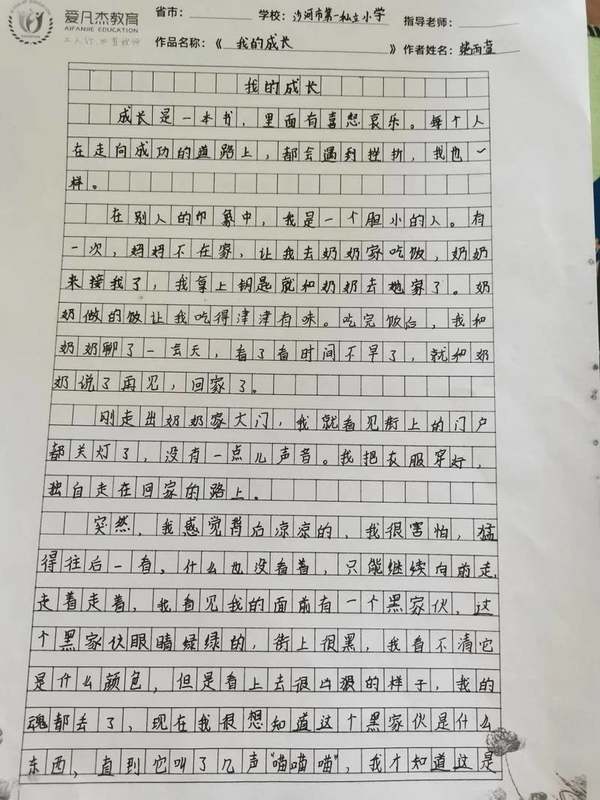 爱凡杰教育
AIFANJIE EDUCATION
省市： 学校：沙河市第一私立小学 指导老师：
作品名称：《 我的成长 》作者姓名：
我的成长
成长是一本书，里面有喜怒哀乐。每个人
在走向成功的道路上，都会遇到挫折，我也一
样。
在别人的印象中，我是一个胆小的人。有
一次，妈妈不在家，让我去奶奶家吃饭，奶奶
来接我了，我拿上钥匙就和奶奶去她家了。奶
奶做的饭让我吃得津津有味。吃完饭后，我和
奶奶聊了一会天，看了看时间不早了，就和奶
奶说了再见，回家了。
刚走出奶奶家大门，我就看见街上的门户
都关灯了，没有一点儿声音。我把衣服穿好，
独自走在回家的路上。
突然，我感觉背后凉凉的，我很害怕，猛
得往后一看，什么也没看着，只能继续向前走，
走着走着，我看见我的面前有一个黑家伙，这
个黑家伙眼睛绿绿的，街上很黑，我看不清它
是什么颜色，但是看上去很凶狠的样子，我的
魂都丢了，现在我很想知道这个黑家伙是什么
东西，直到它叫了几声“喵喵喵”，我才知道这是